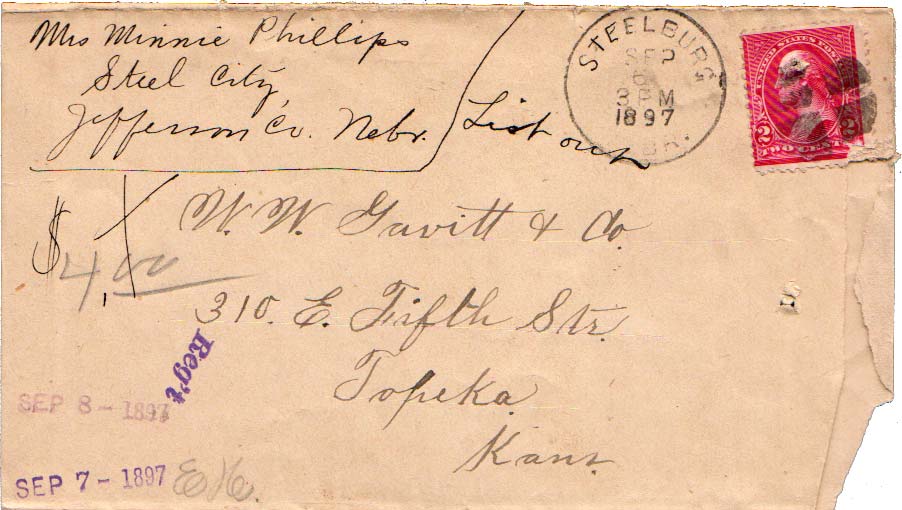 Mrs Minnie Phillips
Steel City,
Jefferson Co. Nebr.
List out
STEELBURG
SEP
6
3PM
1897
BR.
UNITED STATES POST
2 2
TWO CENTS
$4.00
X
W. W. Gavitt & Co.
310. E. Fifth Str.
Topeka
Kans
Reg't
SEP 8 - 1897
SEP 7 - 1897
EH.